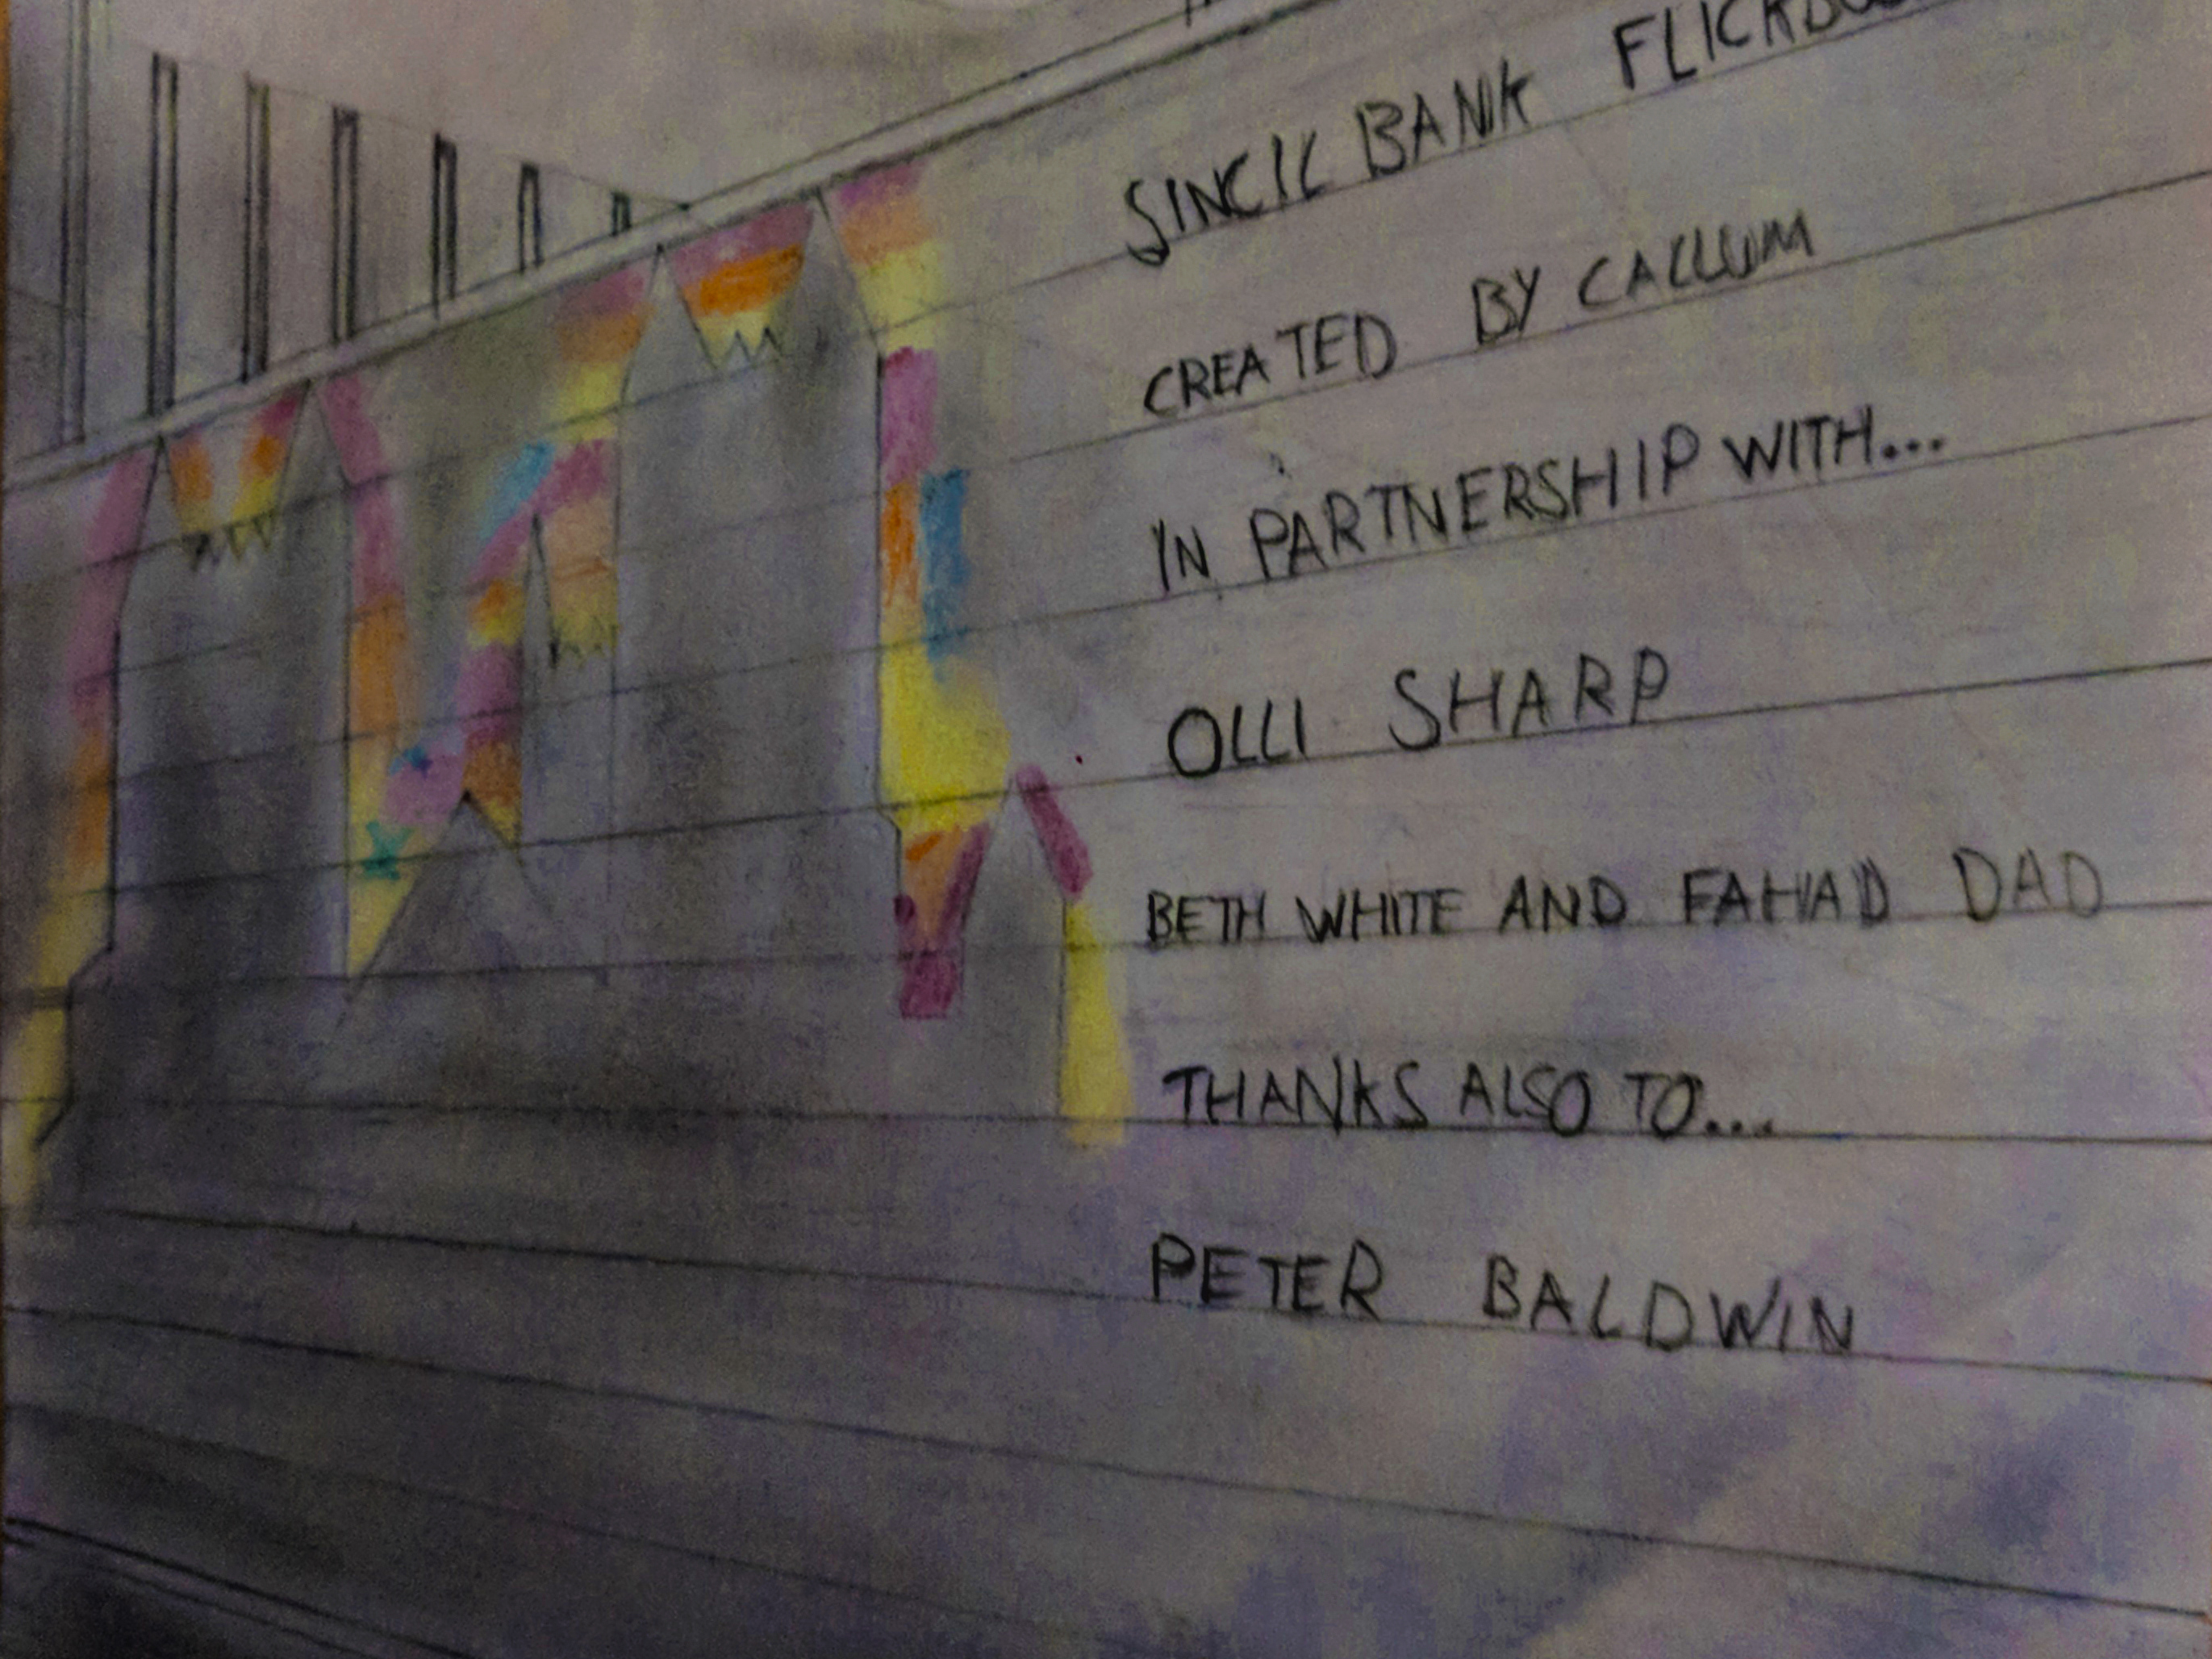 SINCIL BANK
CREATED BY CALLUM
IN PARTNERSHIP WITH...
OLLI SHARP
BETH WHITE AND FAHAD DAD
THANKS ALSO TO....
PETER BALDWIN